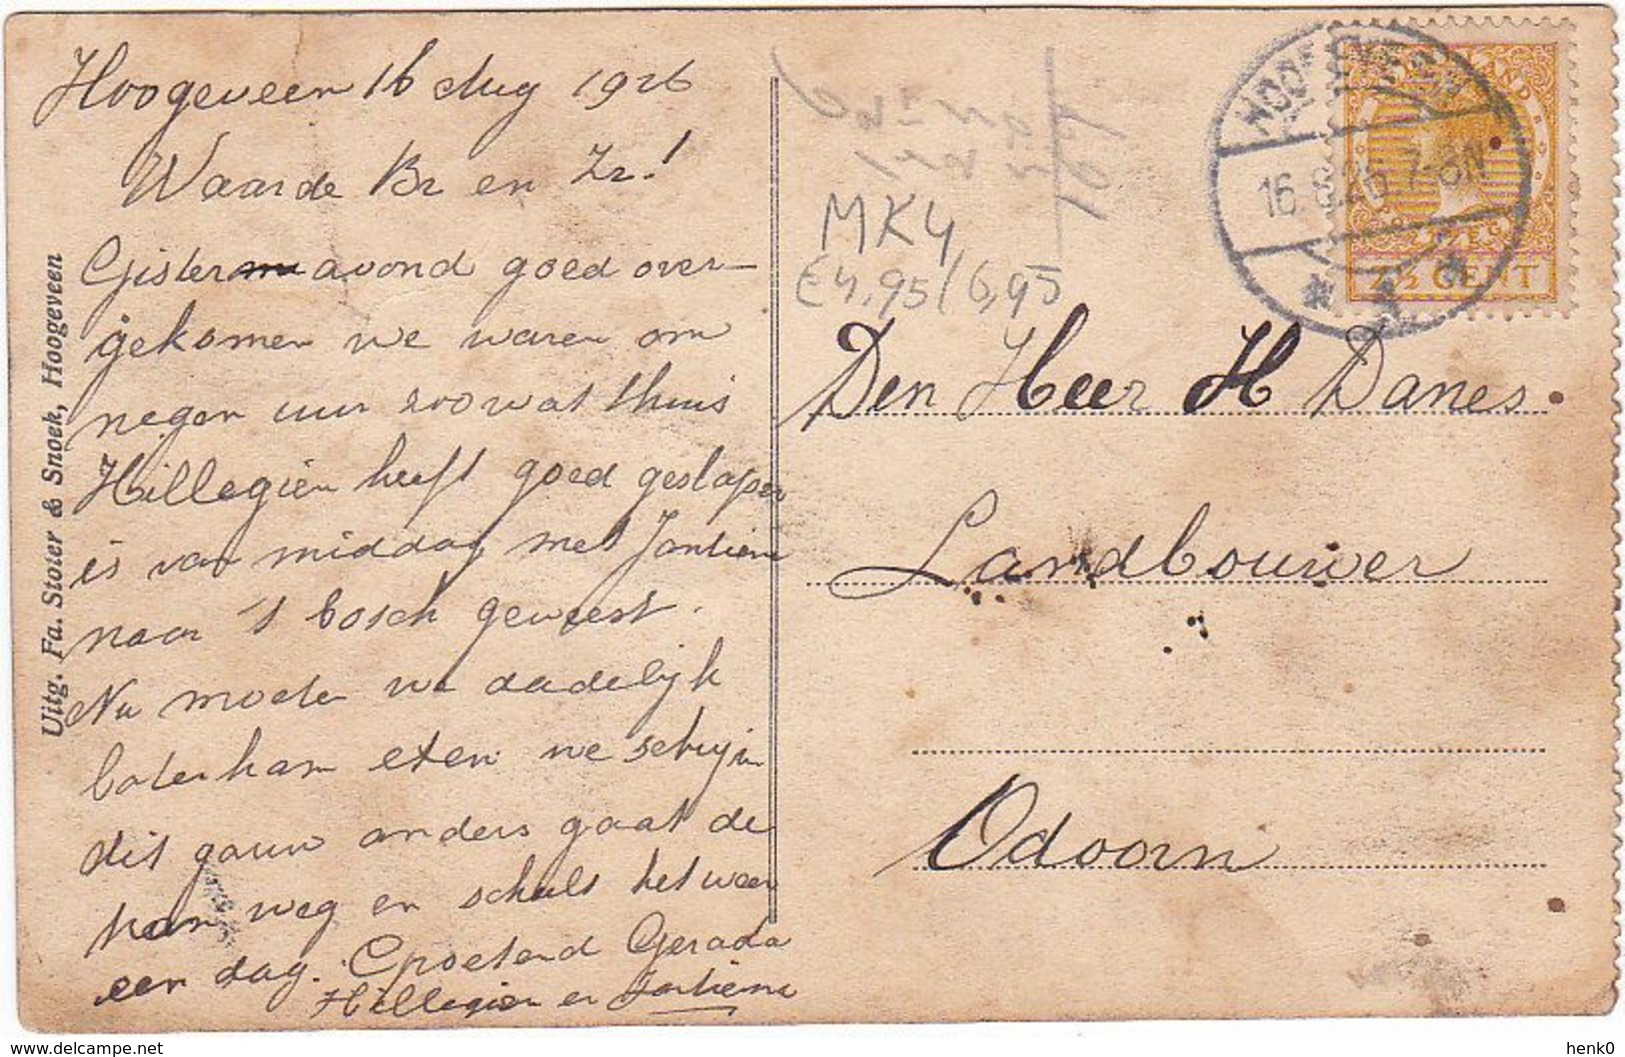 Hoogeveen 16 Aug 1926
Waarde Br en Zr!
Gister avond goed over-
gekomen we waren om
negen uur zoo wat thuis
Hillegien heeft goed geslapen
is van middag met Jantiena
naar 's bosch geweest.
Nu moeten we dadelijk
boterham eten we schrijven
dit gauw anders gaat de
kar weg en schult het weer
een dag. Groetend Gerada
Hillegien en Jantiena
Uitg. Fa. Stoter & Snoek, Hoogeveen
MK4
E4,95/6,95
HOOGEVEEN
16.8.26 7-8N
7½ CENT
Den Heer H Danes
Landbouwer
Odoorn
delcampe.net
henk0